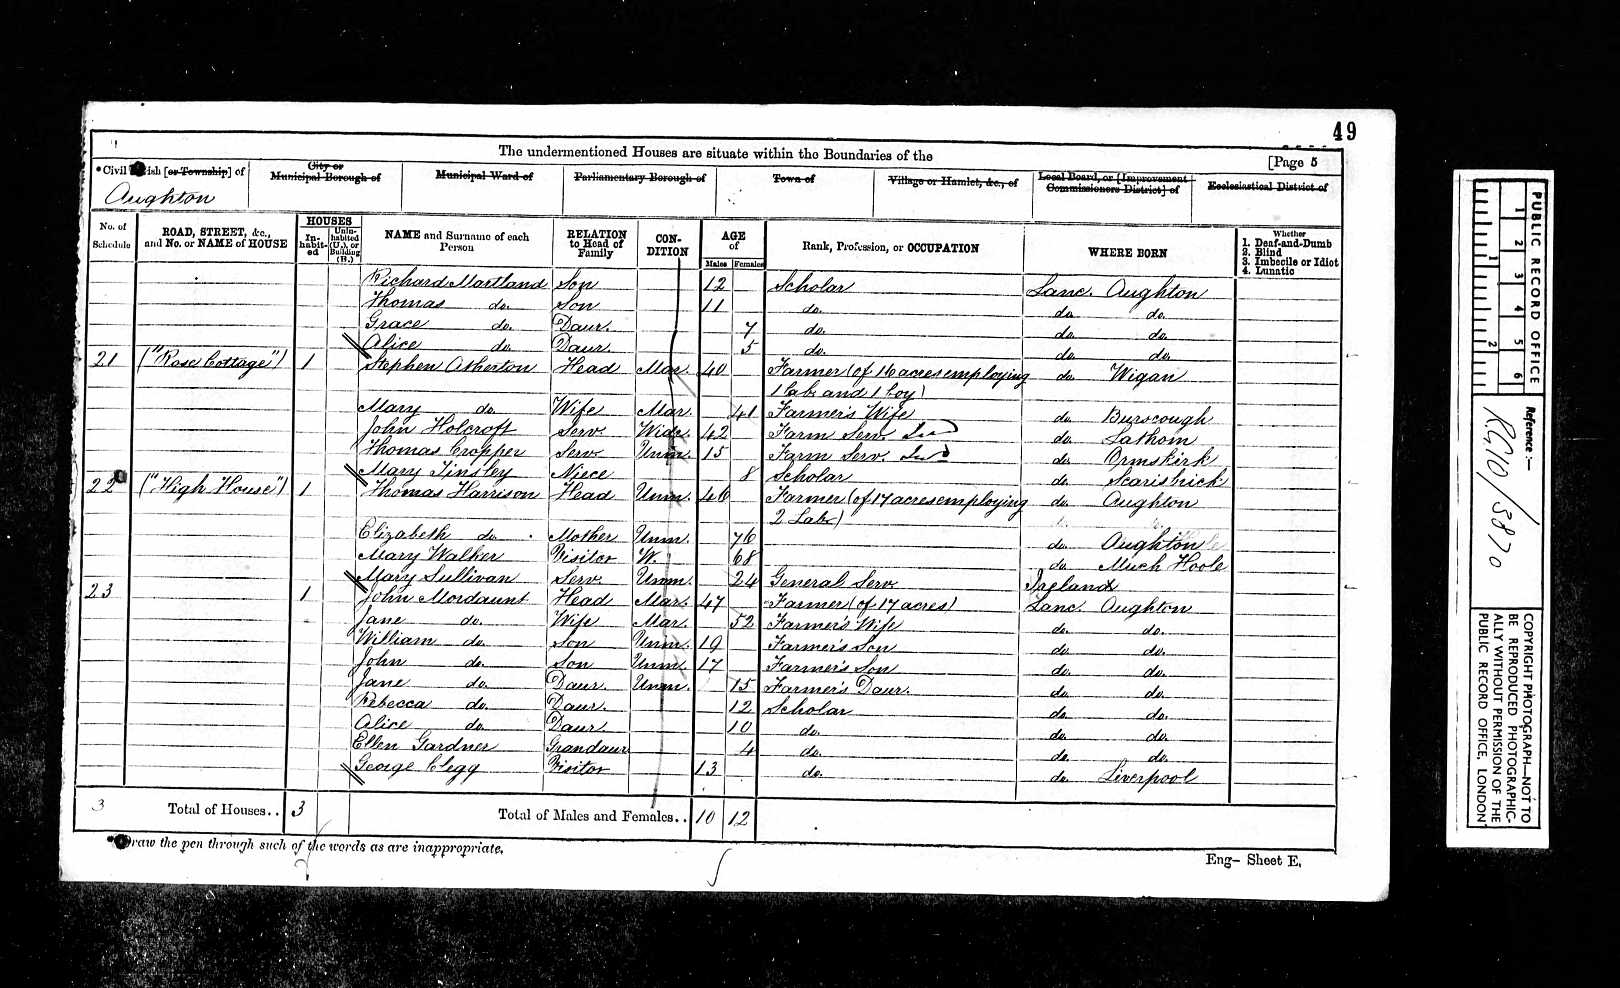 49
The undermentioned Houses are situate within the Boundaries of the
[Page 5
*Civil [or Township] of
City or Municipal Borough of
Municipal Ward of
Parliamentary Borough of
Town of
Village or Hamlet, &c., of
Local Board, or [Improvement Commissioners District] of
Ecclesiastical District of
Aughton
No. of Schedule
ROAD, STREET, &c., and No. or NAME of HOUSE
HOUSES
In-habit-ed
Unin-habited (U.), or Building (B.)
NAME and Surname of each Person
RELATION to Head of Family
CON-DITION
AGE of
Males Females
Rank, Profession, or OCCUPATION
WHERE BORN
Whether
1. Deaf-and-Dumb
2. Blind
3. Imbecile or Idiot
4. Lunatic
Richard Martland Son 12 Scholar Lanc. Aughton
Thomas do. Son 11 do. do. do.
Grace do. Daur. 7 do. do. do.
Alice do. Daur. 5 do. do. do.
21 ("Rose Cottage") 1 Stephen Atherton Head Mar. 40 Farmer (of 16 acres employing do. Wigan
1 lab. and 1 boy)
Mary do. Wife Mar. 41 Farmer's Wife do. Burscough
John Holcroft Serv. Widr. 42 Farm Serv. do. Lathom
Thomas Cropper Serv. Unm. 15 Farm Serv. do. Ormskirk
Mary Tinsley Niece 8 Scholar do. Scarisbrick
22 ("High House") 1 Thomas Harrison Head Unm. 46 Farmer (of 17 acres employing do. Aughton
2 Labs)
Elizabeth do. Mother Unm. 76 do. Aughton
Mary Walker Visitor W. 68 do. Much Hoole
Mary Sullivan Serv. Unm. 24 General Serv. Ireland
23 1 John Mordaunt Head Mar. 47 Farmer (of 17 acres) Lanc. Aughton
Jane do. Wife Mar. 52 Farmer's Wife do. do.
William do. Son Unm. 19 Farmer's Son do. do.
John do. Son Unm. 17 Farmer's Son do. do.
Jane do. Daur. Unm. 15 Farmer's Daur. do. do.
Rebecca do. Daur. 12 Scholar do. do.
Alice do. Daur. 10 do. do. do.
Ellen Gardner Grandaur 4 do. do. do.
George Clegg Visitor 13 do. do. Liverpool
3 Total of Houses.. 3 Total of Males and Females.. 10 12
*Draw the pen through such of the words as are inappropriate.
Eng- Sheet E.
PUBLIC RECORD OFFICE
1 2 3 4 5 6
1 2
Reference:-
RG10/3870
COPYRIGHT PHOTOGRAPH-NOT TO
BE REPRODUCED PHOTOGRAPHIC-
ALLY WITHOUT PERMISSION OF THE
PUBLIC RECORD OFFICE, LONDON